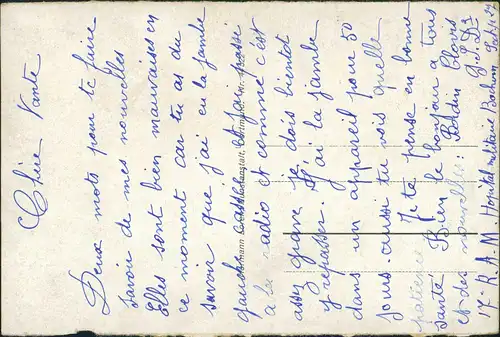 Chère Tante
Deux mots pour te faire
savoir de mes nouvelles
Elles sont bien mauvaises en
ce moment car tu as du
savoir que j'ai eu la jambe
gauche cassée et j'ai passé
à la radio et comme c'est
assez grave je dois bientôt
y repasser. J'ai la jambe
dans un appareil pour 50
jours aussi tu vois quelle
patience. Je te pense en bonne
santé Bien le bonjour a tous
et des nouvelles: Clovis
17e R. A. M. Hopital militaire